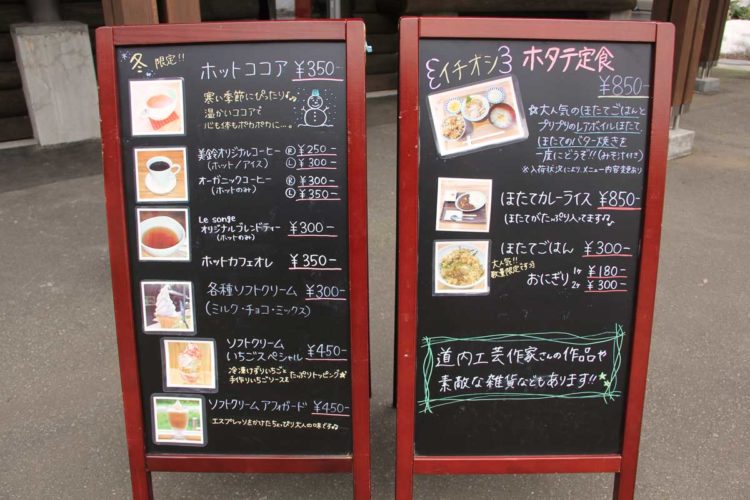 冬 限定!!
ホットココア ¥350-
寒い季節にぴったり♪
温かいココアで
心も体もポカポカに…。
美鈴オリジナルコーヒー Ⓡ ¥250-
(ホット/アイス) Ⓛ ¥300-
オーガニックコーヒー Ⓡ ¥300-
(ホットのみ) Ⓛ ¥350-
Le songe
オリジナルブレンドティー ¥300-
(ホットのみ)
ホットカフェオレ ¥350-
各種ソフトクリーム ¥300-
(ミルク・チョコ・ミックス)
ソフトクリーム
いちごスペシャル ¥450-
冷凍けずりいちごと
手作りいちごソースを たっぷりトッピング☆
ソフトクリームアフォガード ¥450-
エスプレッソをかけたちょっぴり大人の味です♪
イチオシ ホタテ定食
¥850-
☆大人気のほたてごはんと
プリプリのレアボイルほたて、
ほたてのバター焼きを
一度にどうぞ!!(みそ汁付き)
※入荷状況によりメニュー内容変更あり
ほたてカレーライス ¥850-
(ほたてがたっぷり入ってます♪)
ほたてごはん ¥300-
大人気!!
数量限定です
おにぎり 1ヶ ¥180-
2ヶ ¥300-
道内工芸作家さんの作品や
素敵な雑貨などもあります!!